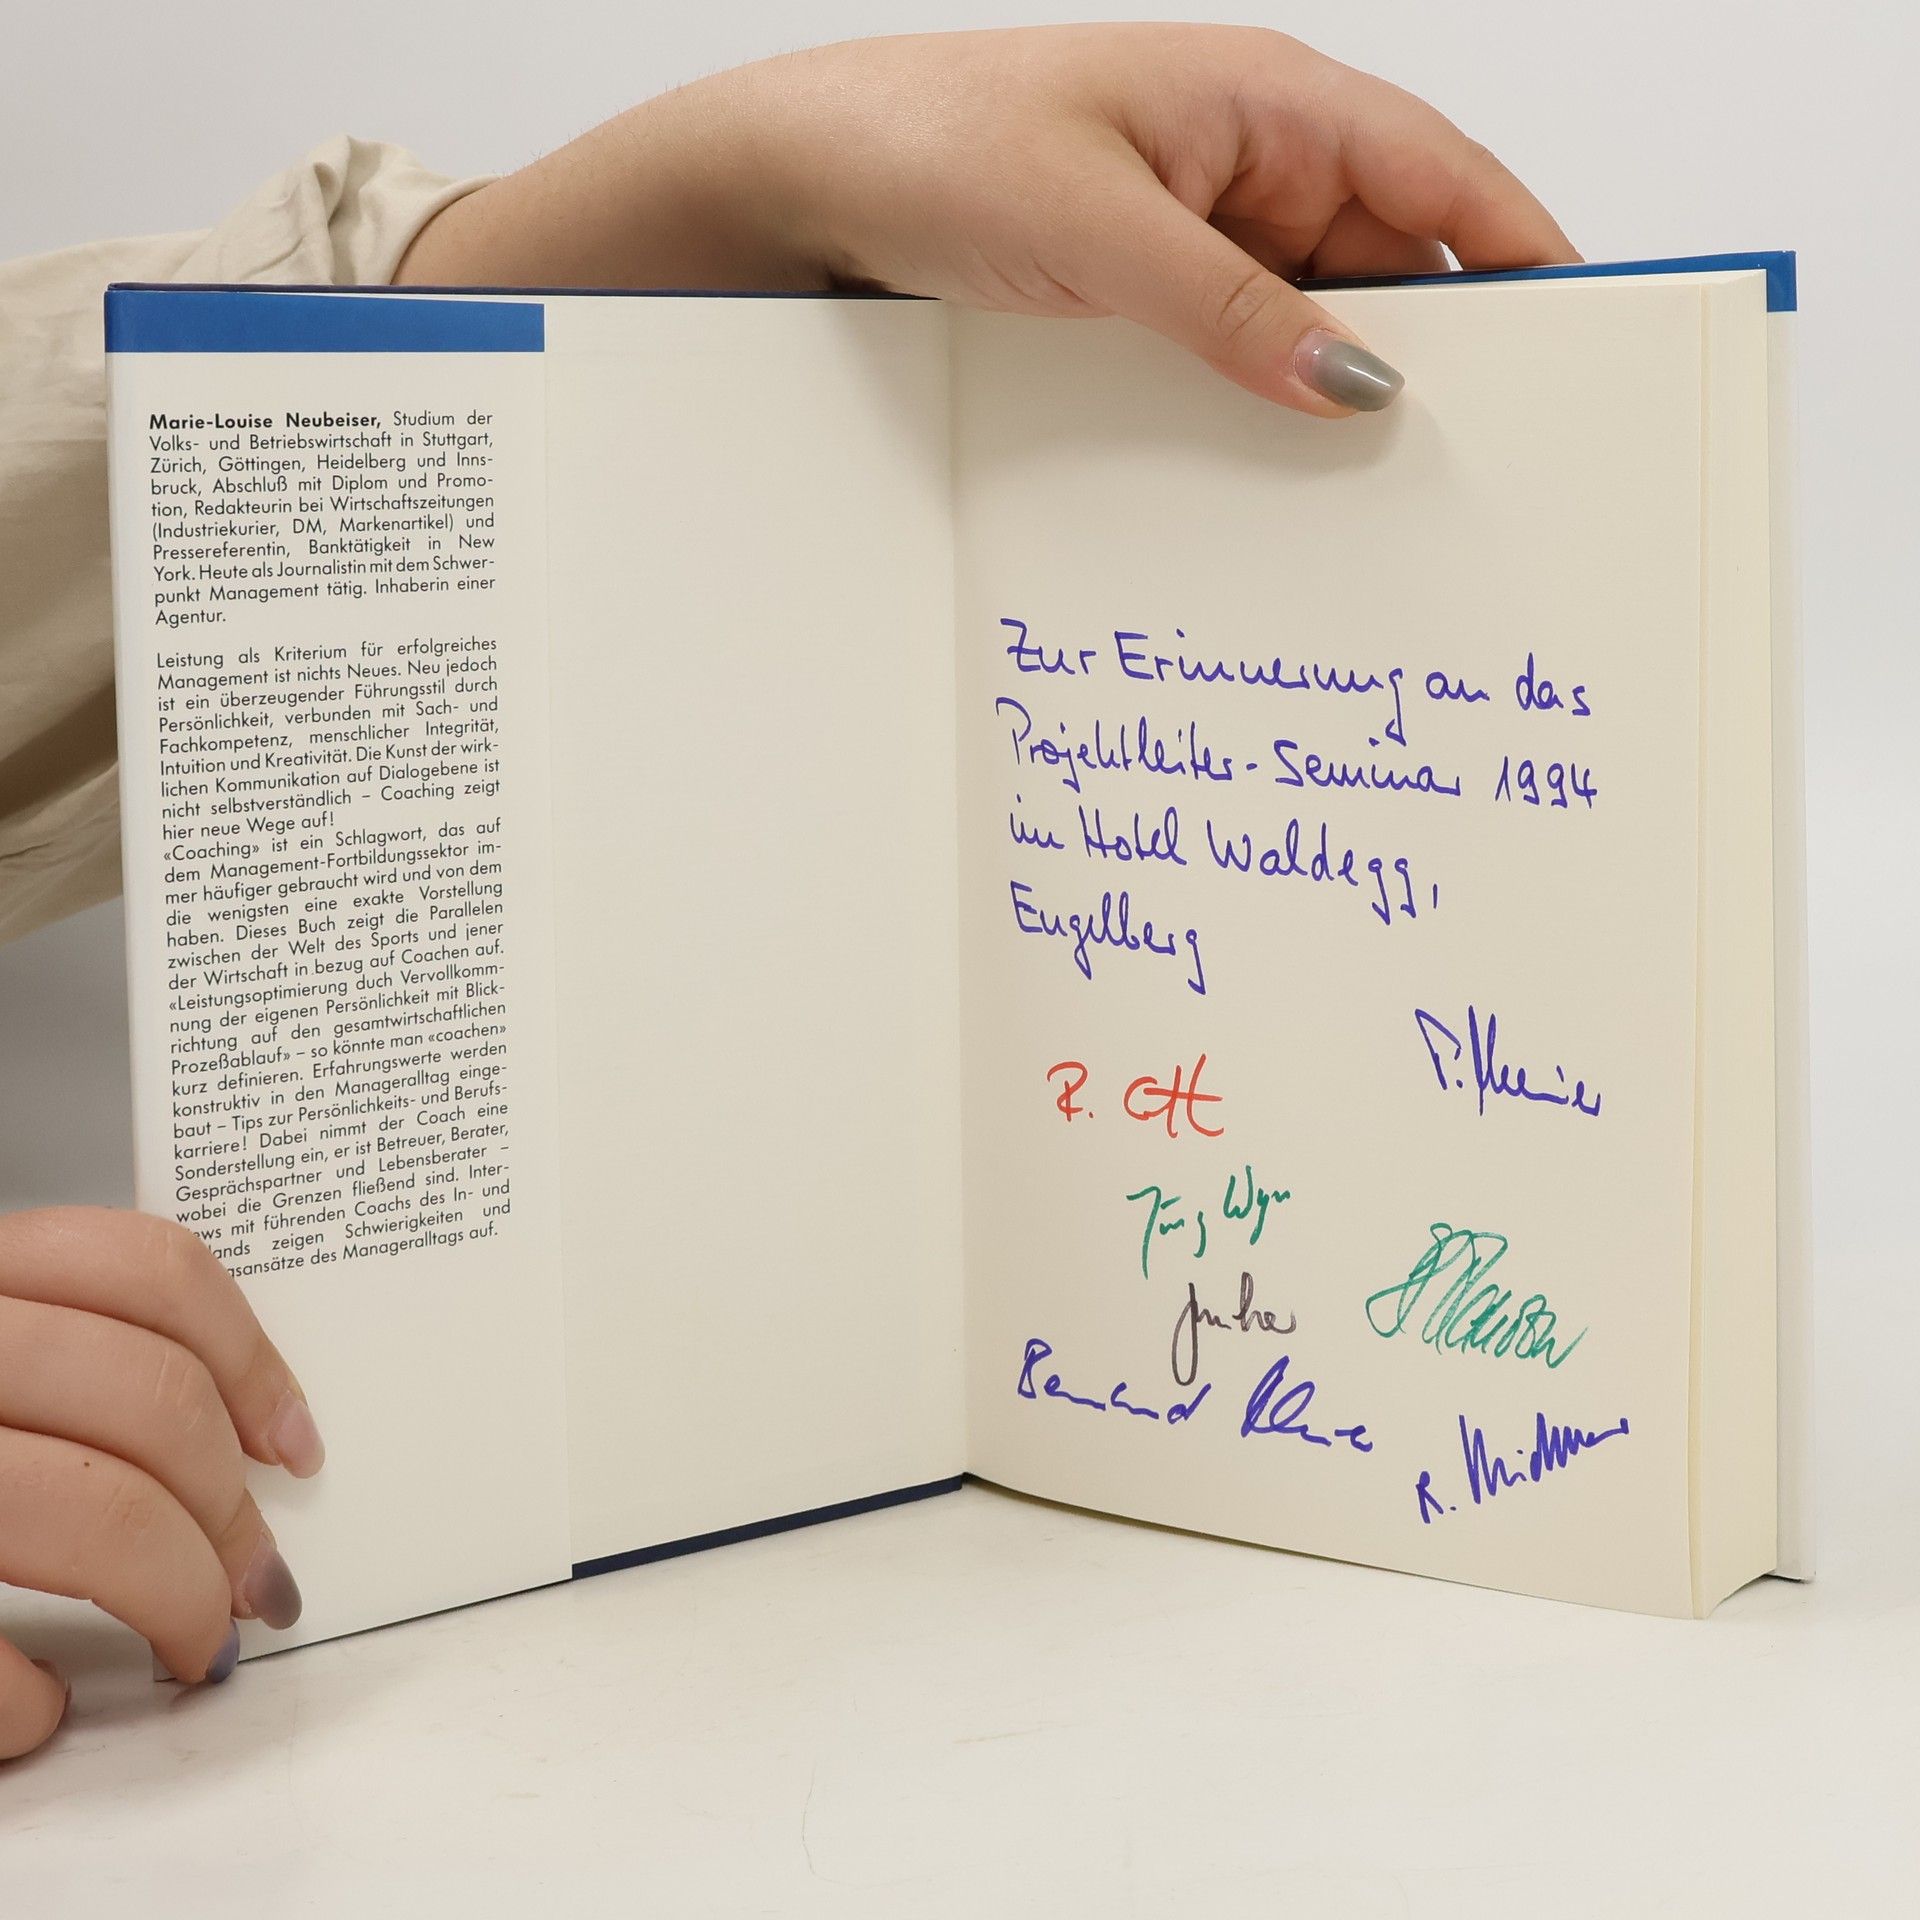 Marie-Louise Neubeiser, Studium der
Volks- und Betriebswirtschaft in Stuttgart,
Zürich, Göttingen, Heidelberg und Inns-
bruck, Abschluß mit Diplom und Promo-
tion, Redakteurin bei Wirtschaftszeitungen
(Industriekurier, DM, Markenartikel) und
Pressereferentin, Banktätigkeit in New
York. Heute als Journalistin mit dem Schwer-
punkt Management tätig. Inhaberin einer
Agentur.
Leistung als Kriterium für erfolgreiches
Management ist nichts Neues. Neu jedoch
ist ein überzeugender Führungsstil durch
Persönlichkeit, verbunden mit Sach- und
Fachkompetenz, menschlicher Integrität,
Intuition und Kreativität. Die Kunst der wirk-
lichen Kommunikation auf Dialogebene ist
nicht selbstverständlich – Coaching zeigt
hier neue Wege auf!
«Coaching» ist ein Schlagwort, das auf
dem Management-Fortbildungssektor im-
mer häufiger gebraucht wird und von dem
die wenigsten eine exakte Vorstellung
haben. Dieses Buch zeigt die Parallelen
zwischen der Welt des Sports und jener
der Wirtschaft in bezug auf Coachen auf.
«Leistungsoptimierung duch Vervollkomm-
nung der eigenen Persönlichkeit mit Blick-
richtung auf den gesamtwirtschaftlichen
Prozeßablauf» – so könnte man «coachen»
kurz definieren. Erfahrungswerte werden
konstruktiv in den Manageralltag einge-
baut – Tips zur Persönlichkeits- und Berufs-
karriere! Dabei nimmt der Coach eine
Sonderstellung ein, er ist Betreuer, Berater,
Gesprächspartner und Lebensberater –
wobei die Grenzen fließend sind. Inter-
ews mit führenden Coachs des In- und
lands zeigen Schwierigkeiten und
gsansätze des Manageralltags auf.
Zur Erinnerung an das
Projektleiter-Seminar 1994
im Hotel Waldegg,
Engelberg
R. Ott
Bernhard
R.